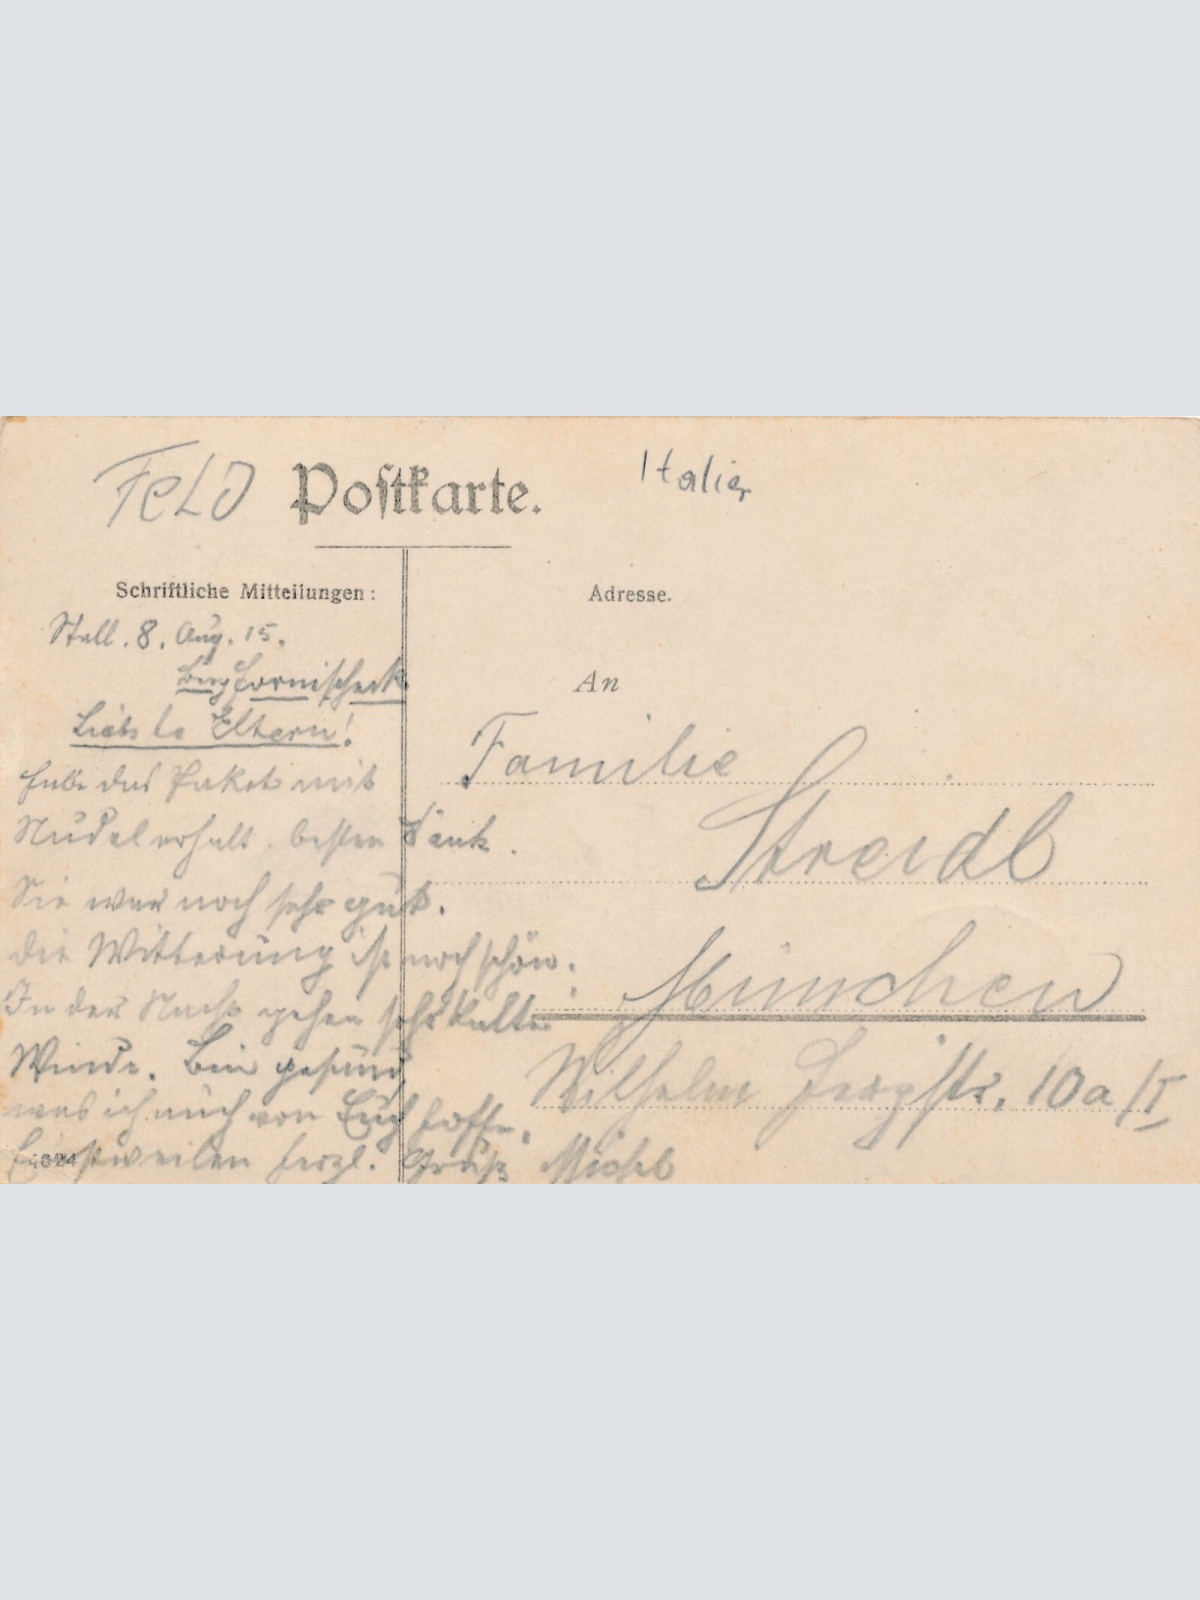 FELD Postkarte.
Italien
Schriftliche Mitteilungen:
Stell. 8. Aug. 15.
Liebste Eltern!
habe das Paket mit
Nudel erhalt. besten Dank.
Sie war noch sehr gut.
die Witterung ist noch schön.
In der Nacht gehen sehr kalte
Winde. Bin gesund
was ich auch von Euch hoffe.
Einstweilen herzl. Gruß Michl
4624
Adresse.
An
Familie
Streidl
München
Wilhelm Herzstr. 10a/I